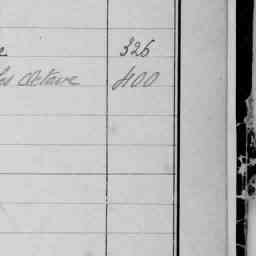 e 326
les Octave 400